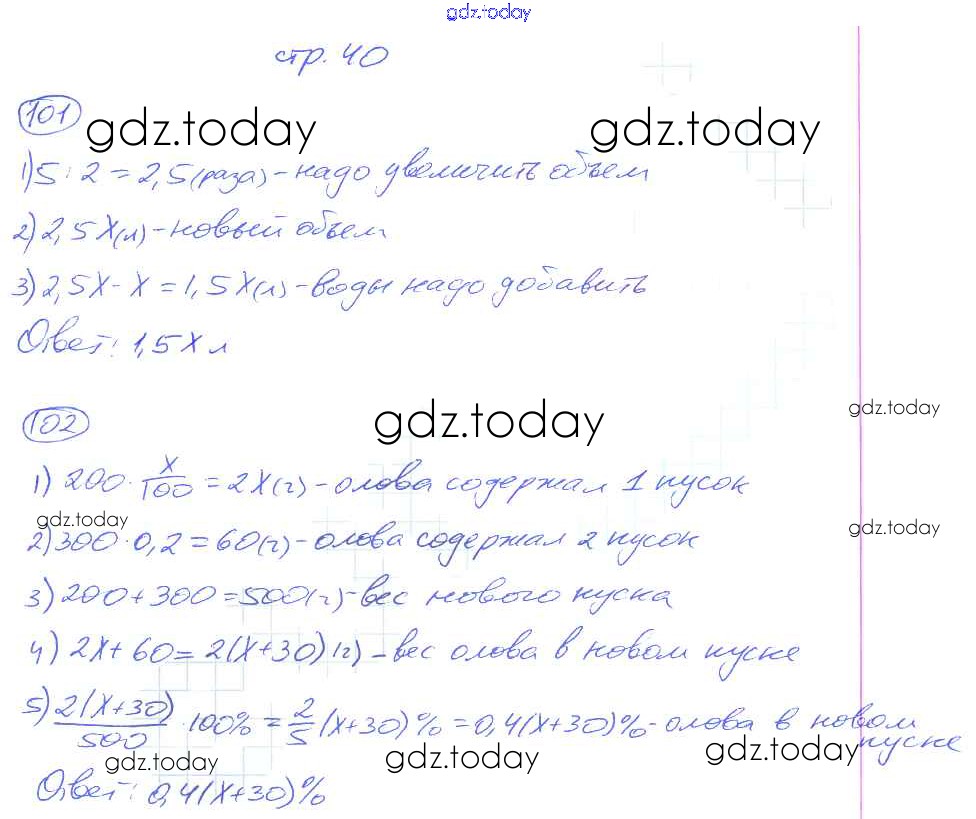 gdz.today
стр. 40
101
gdz.today gdz.today
1) 5 : 2 = 2,5 (раза) - надо увеличить объем
2) 2,5x (л) - новый объем
3) 2,5x - x = 1,5x (л) - воды надо добавить
Ответ: 1,5x л
102
gdz.today gdz.today
1) 200 · x/100 = 2x (г) - олова содержал 1 кусок
gdz.today gdz.today
2) 300 · 0,2 = 60 (г) - олова содержал 2 кусок
3) 200 + 300 = 500 (г) - вес нового куска
4) 2x + 60 = 2(x+30) (г) - вес олова в новом куске
5) 2(x+30)/500 · 100% = 2/5 (x+30)% = 0,4(x+30)% - олова в новом
куске
gdz.today gdz.today gdz.today
Ответ: 0,4(x+30)%